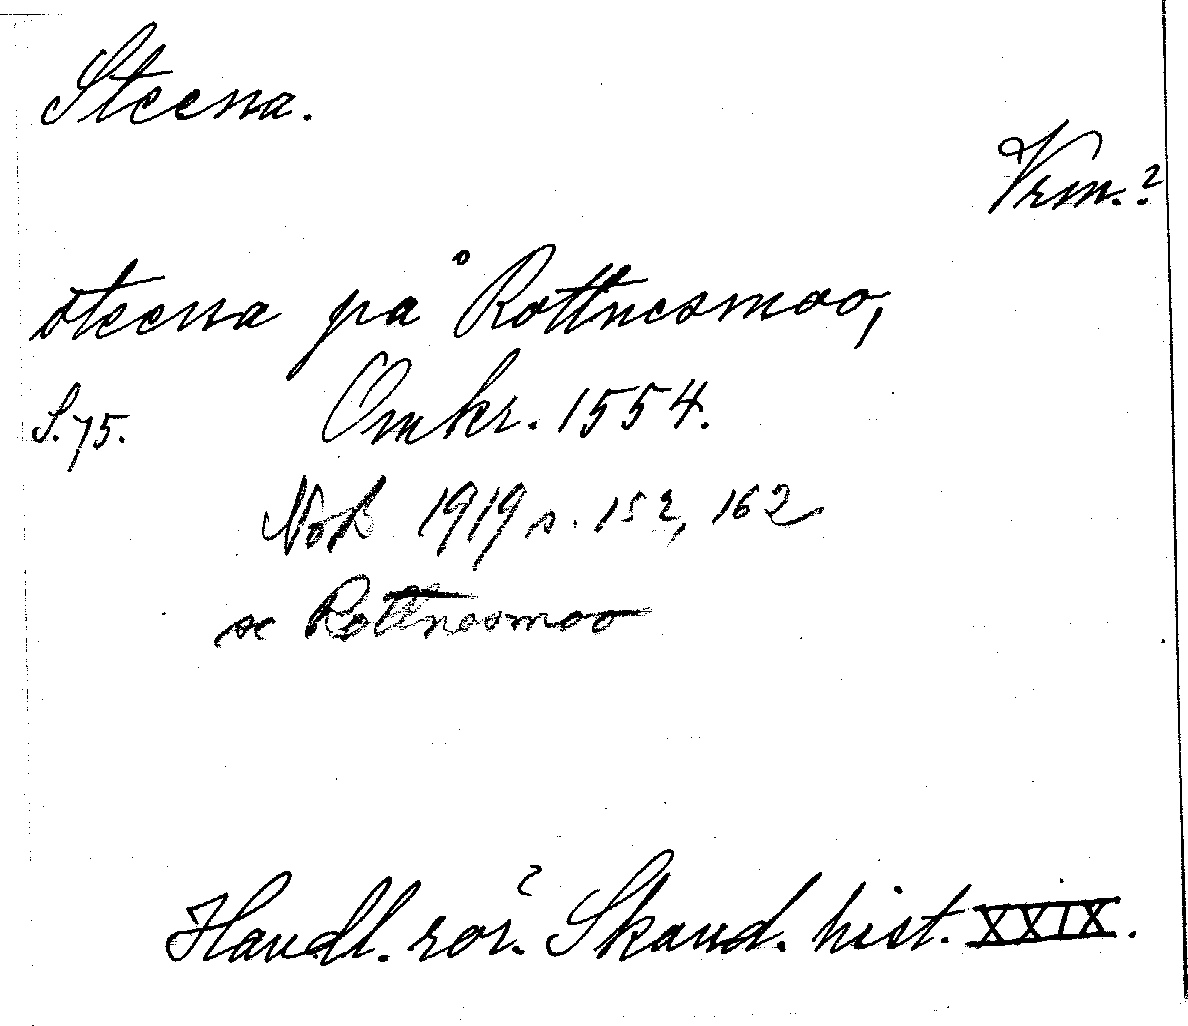 Steena.
Vrm.?
steena på Rottnesmoo,
S. 75. Omkr. 1554.
NoB 1919 s. 152, 162
se Rottnesmoo
Handl. rör. Skand. hist. XXIX.